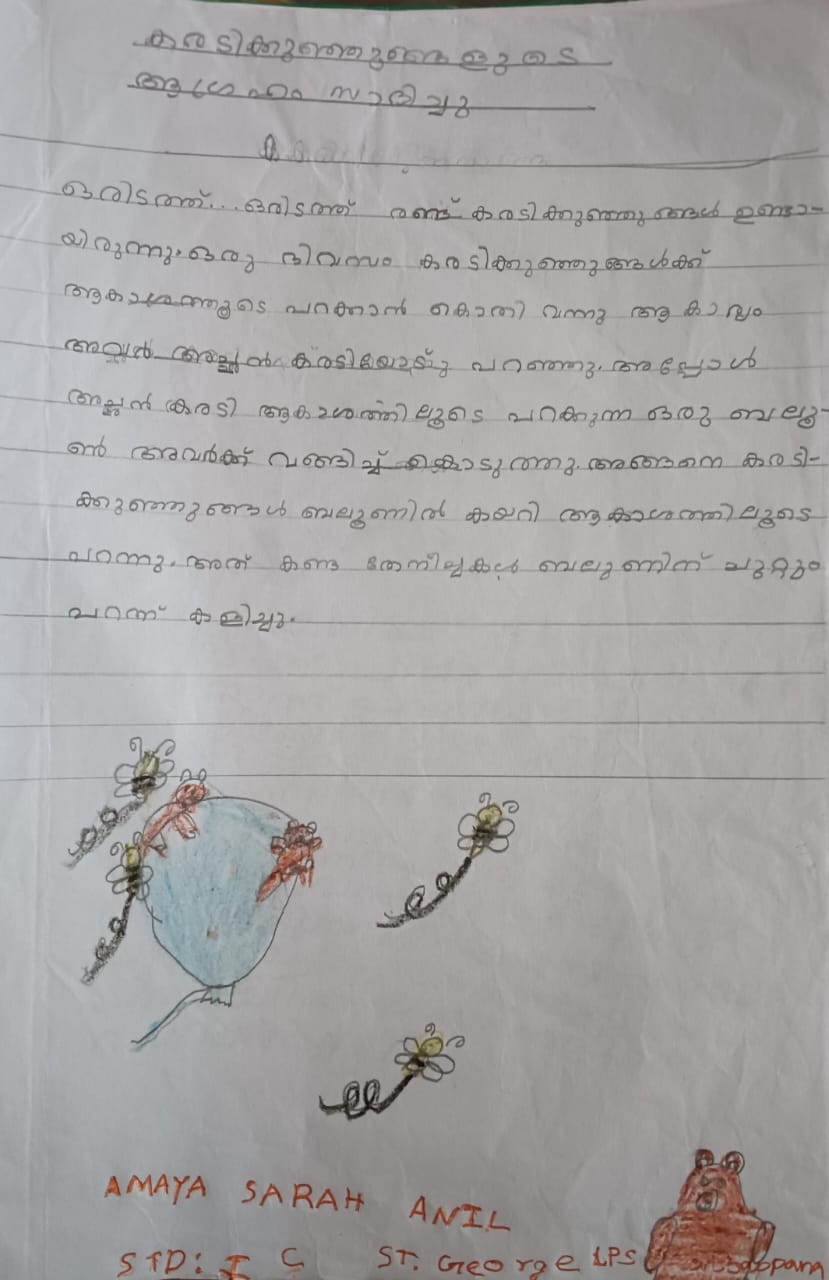 കരടിക്കുഞ്ഞുങ്ങളുടെ
ആഗ്രഹം സാദിച്ചു
ഒരിടത്ത്... ഒരിടത്ത് രണ്ട് കരടിക്കുഞ്ഞുങ്ങൾ ഉണ്ടാ-
യിരുന്നു. ഒരു ദിവസം കരടിക്കുഞ്ഞുങ്ങൾക്ക്
ആകാശത്തൂടെ പറക്കാൻ കൊതി വന്നു ആ കാര്യം
അവർ അച്ഛൻ കരടിയോടു പറഞ്ഞു. അപ്പോൾ
അച്ഛൻ കരടി ആകാശത്തിലൂടെ പറക്കുന്ന ഒരു ബലൂ-
ൺ അവർക്ക് വങ്ങിച്ച് കൊടുത്തു. അങ്ങനെ കരടി-
ക്കുഞ്ഞുങ്ങൾ ബലൂണിൽ കയറി ആകാശത്തിലൂടെ
പറന്നു. അത് കണ്ട തേനീച്ചകൾ ബലൂണിന് ചുറ്റും
പറന്ന് കളിച്ചു.
AMAYA SARAH ANIL
STD: I C ST. George LPS